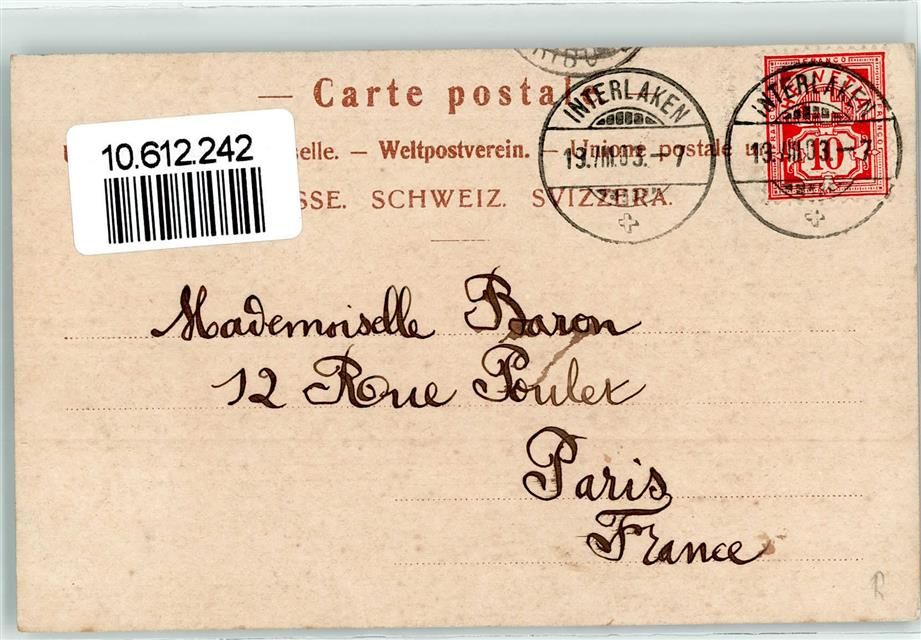 Carte postale
10.612.242
selle. — Weltpostverein. — Unione postale
SSE. SCHWEIZ. SVIZZERA.
INTERLAKEN
INTERLAKEN
FRANCO
10
Mademoiselle Baron
12 Rue Poulet
Paris
France
R